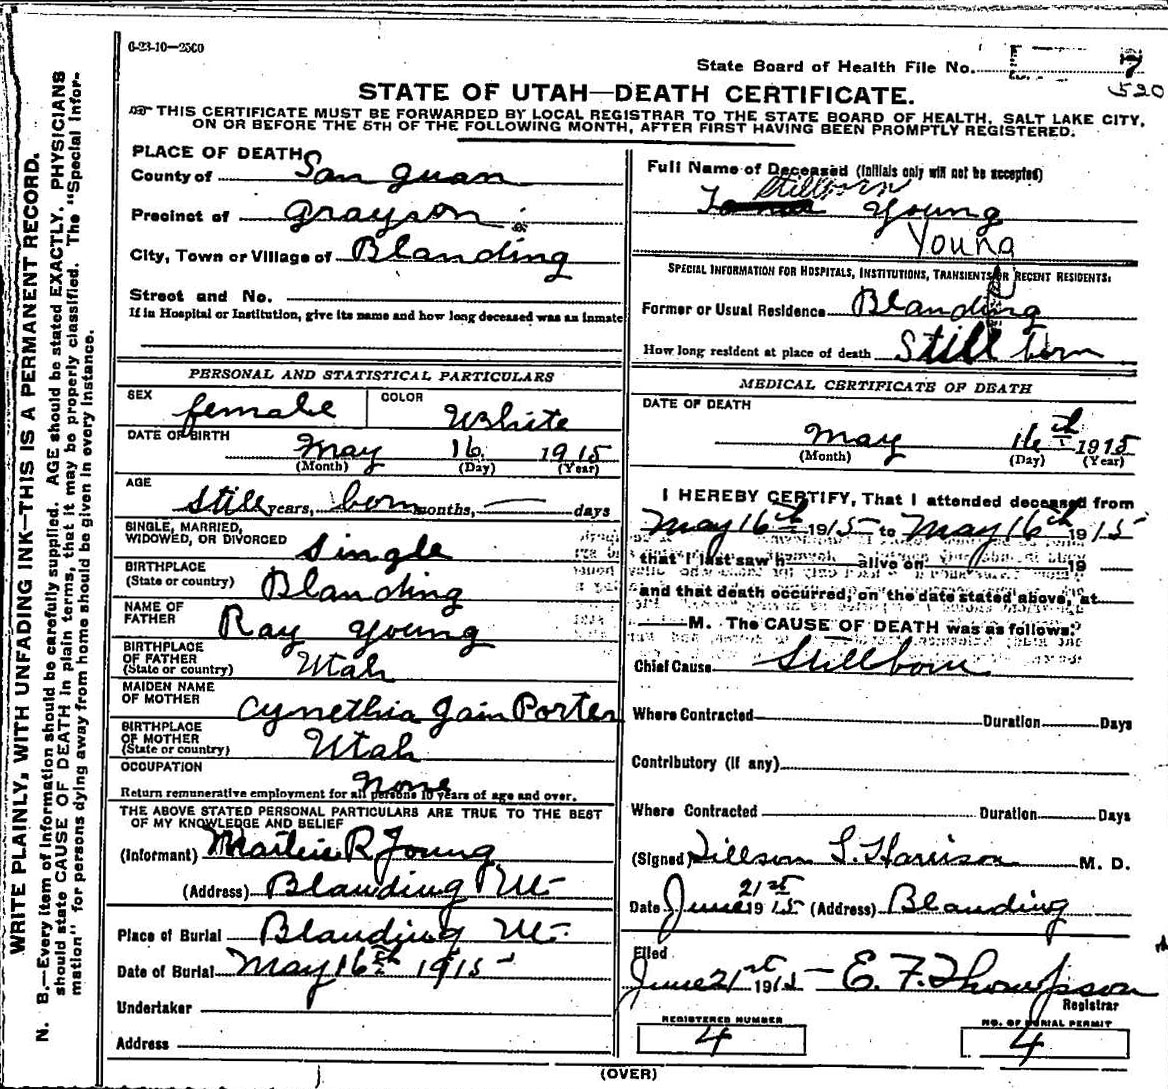 6-23-10—2500
State Board of Health File No. 7
520
STATE OF UTAH—DEATH CERTIFICATE.
THIS CERTIFICATE MUST BE FORWARDED BY LOCAL REGISTRAR TO THE STATE BOARD OF HEALTH, SALT LAKE CITY,
ON OR BEFORE THE 5TH OF THE FOLLOWING MONTH, AFTER FIRST HAVING BEEN PROMPTLY REGISTERED.
WRITE PLAINLY, WITH UNFADING INK—THIS IS A PERMANENT RECORD.
N. B.—Every item of information should be carefully supplied. AGE should be stated EXACTLY. PHYSICIANS
should state CAUSE OF DEATH in plain terms, that it may be properly classified. The "Special Infor-
mation" for persons dying away from home should be given in every instance.
PLACE OF DEATH
County of San Juan
Precinct of Grayson
City, Town or Village of Blanding
Street and No.
If in Hospital or Institution, give its name and how long deceased was an inmate
PERSONAL AND STATISTICAL PARTICULARS
SEX female COLOR White
DATE OF BIRTH May 16 1915
(Month) (Day) (Year)
AGE
Still years, born months, — days
SINGLE, MARRIED,
WIDOWED, OR DIVORCED Single
BIRTHPLACE
(State or country) Blanding
NAME OF
FATHER Ray Young
BIRTHPLACE
OF FATHER
(State or country) Utah
MAIDEN NAME
OF MOTHER Cynethia Jain Porter
BIRTHPLACE
OF MOTHER
(State or country) Utah
OCCUPATION
None
Return remunerative employment for all persons 10 years of age and over.
THE ABOVE STATED PERSONAL PARTICULARS ARE TRUE TO THE BEST
OF MY KNOWLEDGE AND BELIEF
(Informant) R Young
(Address) Blanding Ut
Place of Burial Blanding Ut
Date of Burial May 16th 1915
Undertaker
Address
Full Name of Deceased (Initials only will not be accepted)
Stillborn
Young
Young
SPECIAL INFORMATION FOR HOSPITALS, INSTITUTIONS, TRANSIENTS OR RECENT RESIDENTS:
Former or Usual Residence Blanding
How long resident at place of death Still born
MEDICAL CERTIFICATE OF DEATH
DATE OF DEATH
May 16th 1915
(Month) (Day) (Year)
I HEREBY CERTIFY, That I attended deceased from
May 16th 1915 to May 16th 1915
that I last saw h alive on 19
and that death occurred, on the date stated above, at
M. The CAUSE OF DEATH was as follows:
Chief Cause Stillborn
Where Contracted Duration Days
Contributory (if any)
Where Contracted Duration Days
(Signed) Tillson L. Harrison M. D.
Date June 21st 1915 (Address) Blanding
Filed
June 21st 1915 — E. F. Thompson
Registrar
REGISTERED NUMBER
4
NO. OF BURIAL PERMIT
4
(OVER)